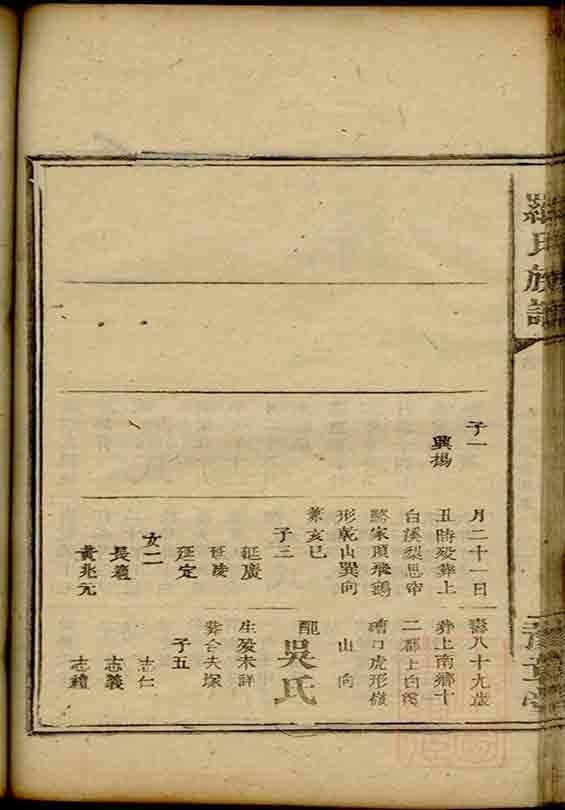 羅氏族譜
子一
興揚
月二十一日
丑時歿葬上
白溪梨思
家
形乾山巽向
兼亥巳
子三
廷廣
廷定
女二
長適
黃兆元
壽八十九歲
葬上南鄉十
二都上白溪
虎形
山向
配吳氏
生歿未詳
葬合夫塚
子五
志仁
志義
志禮